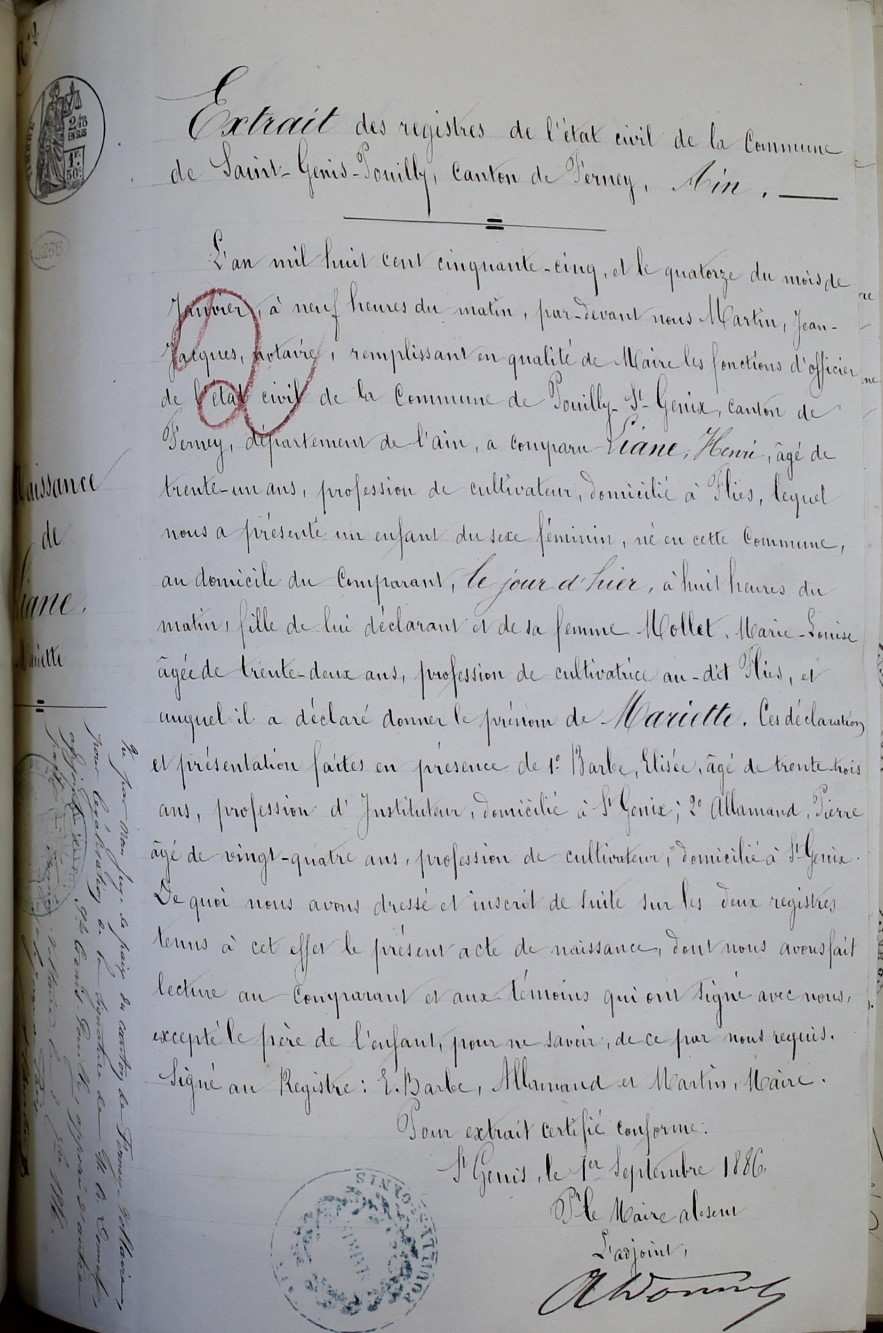 Extrait des registres de l'état civil de la Commune
de Saint-Genis-Pouilly, canton de Ferney, Ain.
L'an mil huit cent cinquante-cinq, et le quatorze du mois de
Janvier, à neuf heures du matin, par-devant nous Martin, Jean-
Jacques, notaire, remplissant en qualité de Maire les fonctions d'officier
de l'état civil de la Commune de Pouilly-St-Genix, canton de
Ferney, département de l'ain, a comparu Liane, Henri, âgé de
trente-un ans, profession de cultivateur, domicilié à Flies, lequel
nous a présenté un enfant du sexe féminin, né en cette Commune,
au domicile du Comparant, le jour d'hier, à huit heures du
matin, fille de lui déclarant et de sa femme Mollet, Marie-Louise
âgée de trente-deux ans, profession de cultivatrice au-dit Flies, et
auquel il a déclaré donner le prénom de Mariette. Ces déclaration
et présentation faites en présence de 1º Barbe, Elisée, âgé de trente-trois
ans, profession d'Instituteur, domicilié à St Genix; 2º Allamand, Pierre
âgé de vingt-quatre ans, profession de cultivateur, domicilié à St Genix.
De quoi nous avons dressé et inscrit de suite sur les deux registres
tenus à cet effet le présent acte de naissance, dont nous avons fait
lecture au Comparant et aux témoins qui ont signé avec nous,
excepté le père de l'enfant, pour ne savoir, de ce par nous requis.
Signé au Registre: E. Barbe, Allamand et Martin, Maire.
Pour extrait certifié conforme:
St Genis, le 1er Septembre 1886.
Pr le Maire absent
L'adjoint,
Naissance
de
Liane,
Mariette
Vu par nous juge de paix du canton de Ferney-Voltaire,
pour légalisation de la signature de M.
adjoint
POUILLY-ST-GENIS
MAIRIE